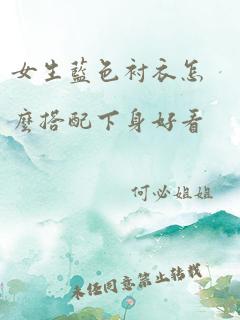 女生藍色衬衣怎
麽搭配下身好看
何必姐姐
未经同意禁止转载